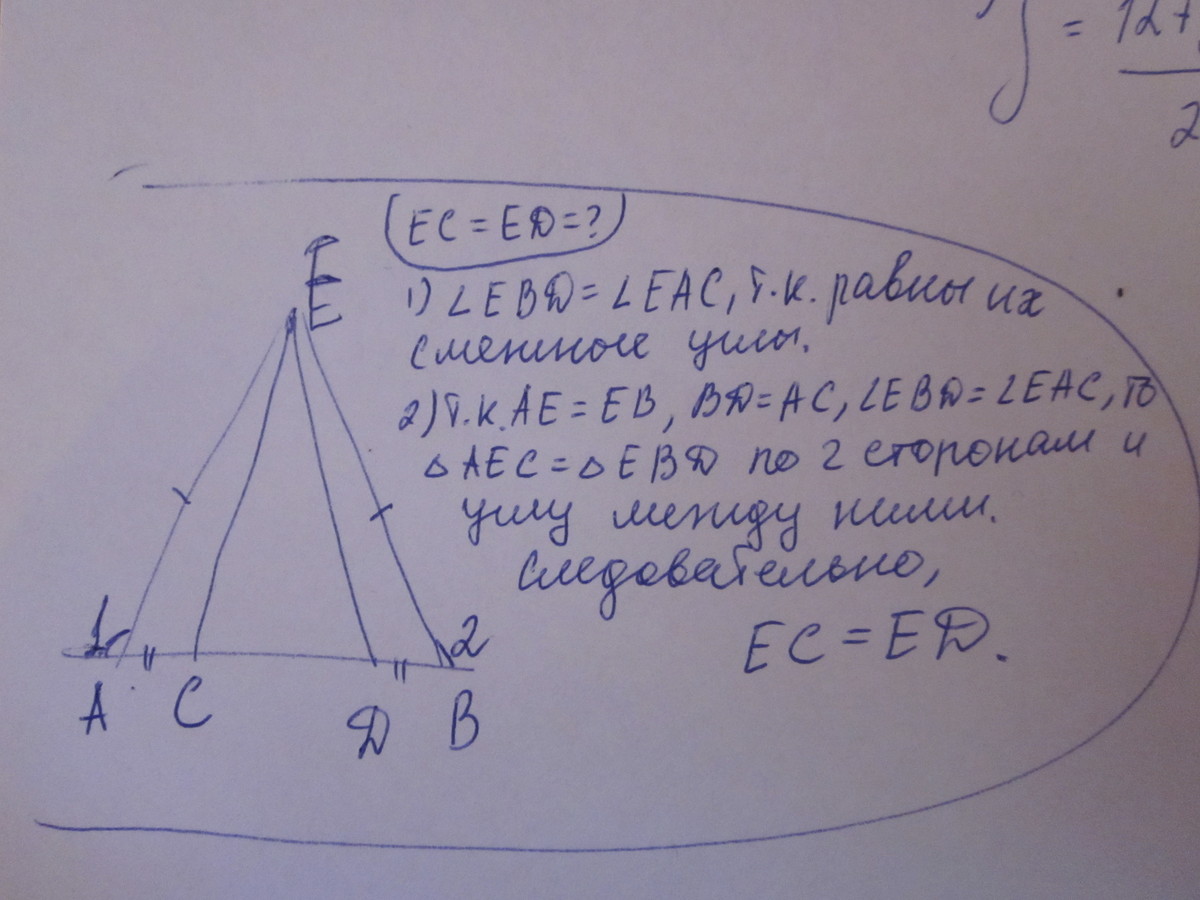 ∫ = 127
2
EC = ED = ?
E
E
1) ∠EBD = ∠EAC, т.к. равны их
смежные углы.
2) т.к. AE = EB, BD = AC, ∠EBD = ∠EAC, то
△AEC = △EBD по 2 сторонам и
углу между ними.
Следовательно,
EC = ED.
1 2
A C D B